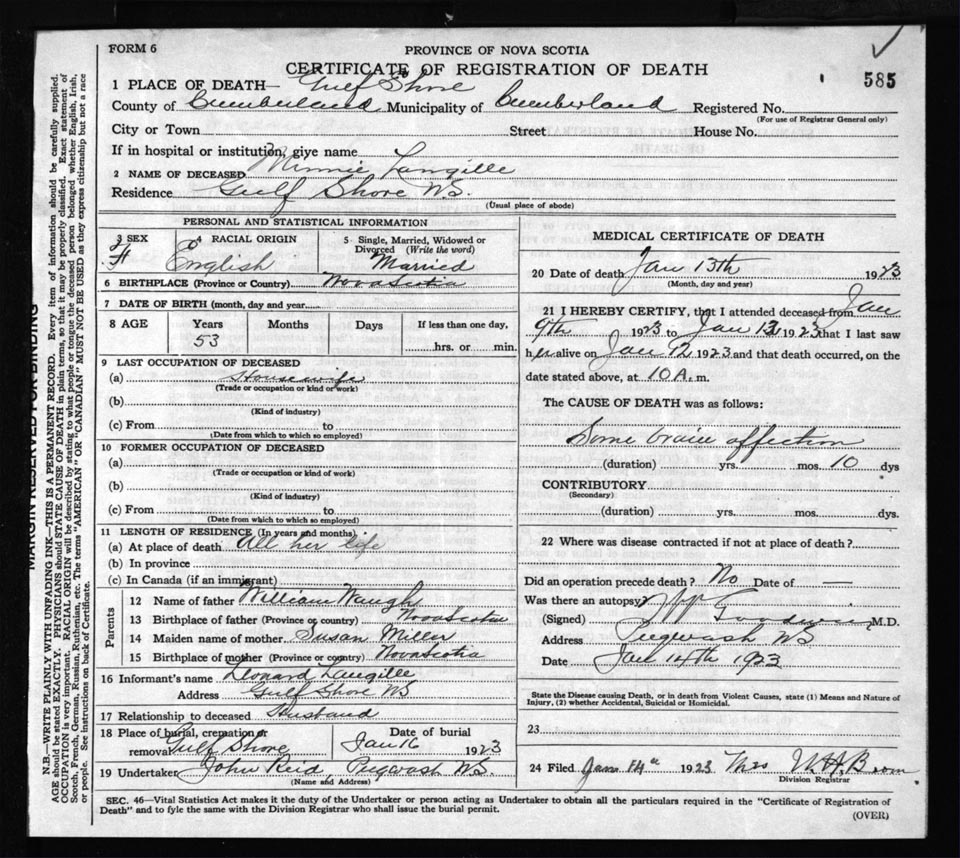 FORM 6
PROVINCE OF NOVA SCOTIA
CERTIFICATE OF REGISTRATION OF DEATH
585
1 PLACE OF DEATH— Gulf Shore
County of Cumberland Municipality of Cumberland Registered No.
(For use of Registrar General only)
City or Town Street House No.
If in hospital or institution, give name
2 NAME OF DECEASED Minnie Langille
Residence Gulf Shore N.S.
(Usual place of abode)
PERSONAL AND STATISTICAL INFORMATION
3 SEX 4 RACIAL ORIGIN 5 Single, Married, Widowed or Divorced (Write the word)
F English Married
6 BIRTHPLACE (Province or Country) Nova Scotia
7 DATE OF BIRTH (month, day and year)
8 AGE Years Months Days If less than one day,
53 hrs. or min.
9 LAST OCCUPATION OF DECEASED
(a) Housewife
(Trade or occupation or kind of work)
(b)
(Kind of industry)
(c) From to
(Date from which to which so employed)
10 FORMER OCCUPATION OF DECEASED
(a)
(Trade or occupation or kind of work)
(b)
(Kind of industry)
(c) From to
(Date from which to which so employed)
11 LENGTH OF RESIDENCE (In years and months)
(a) At place of death All her life
(b) In province
(c) In Canada (if an immigrant)
Parents
12 Name of father William Waugh
13 Birthplace of father (Province or country) Nova Scotia
14 Maiden name of mother Susan Miller
15 Birthplace of mother (Province or country) Nova Scotia
16 Informant's name Leonard Langille
Address Gulf Shore NS
17 Relationship to deceased Husband
18 Place of burial, cremation or removal Gulf Shore Date of burial
Jan 16 1923
19 Undertaker John Reid, Pugwash N.S.
(Name and Address)
MEDICAL CERTIFICATE OF DEATH
20 Date of death Jan 13th 1923
(Month, day and year)
21 I HEREBY CERTIFY, that I attended deceased from Jan
9th 1923 to Jan 13 1923 that I last saw
her alive on Jan 12 1923 and that death occurred, on the
date stated above, at 10 A. m.
The CAUSE OF DEATH was as follows:
Some brain affection
(duration) yrs. mos. 10 dys
CONTRIBUTORY
(Secondary)
(duration) yrs. mos. dys.
22 Where was disease contracted if not at place of death?
Did an operation precede death? No Date of —
Was there an autopsy
(Signed) M.D.
Address Pugwash NS
Date Jan 14th 1923
State the Disease causing Death, or in death from Violent Causes, state (1) Means and Nature of
Injury, (2) whether Accidental, Suicidal or Homicidal.
23
24 Filed Jan. 14th 1923 Mrs
Division Registrar
SEC. 46—Vital Statistics Act makes it the duty of the Undertaker or person acting as Undertaker to obtain all the particulars required in the "Certificate of Registration of
Death" and to fyle the same with the Division Registrar who shall issue the burial permit.
(OVER)
MARGIN RESERVED FOR BINDING
N.B.—WRITE PLAINLY WITH UNFADING INK—THIS IS A PERMANENT RECORD. Every item of information should be carefully supplied.
AGE should be stated EXACTLY. PHYSICIANS should STATE CAUSE OF DEATH in plain terms, so that it may be properly classified. Exact statement of
OCCUPATION is very important. RACIAL ORIGIN will be described by stating to what people or tongue the deceased person belonged whether English, Irish,
Scotch, French, German, Russian, Ruthenian, etc. The terms "AMERICAN" OR "CANADIAN" MUST NOT BE USED as they express citizenship but not a race
or people. See instructions on back of Certificate.